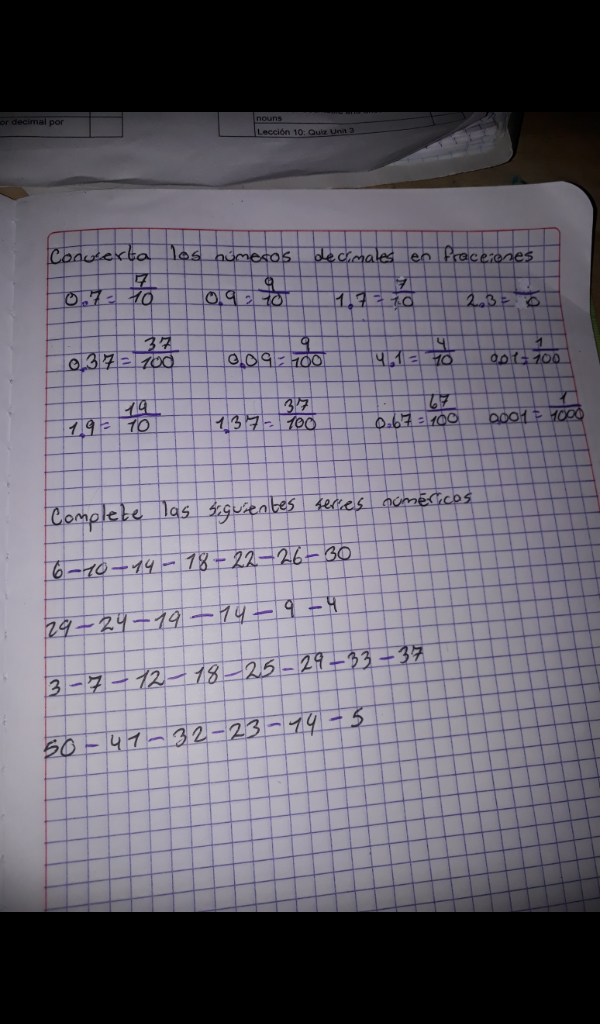 or decimal por
nouns
Lección 10: Quiz Unit 3
Convierta los números decimales en fracciones
0.7 = 7/10 0.9 = 9/10 1.7 = 7/10 2.3 = /0
0.37 = 37/100 0.09 = 9/100 4.1 = 4/10 0.01 = 1/100
1.9 = 19/10 1.37 = 37/100 0.67 = 67/100 0.001 = 1/1000
Complete las siguientes series numéricas
6-10-14-18-22-26-30
29-24-19-14-9-4
3-7-12-18-25-29-33-37
50-41-32-23-14-5